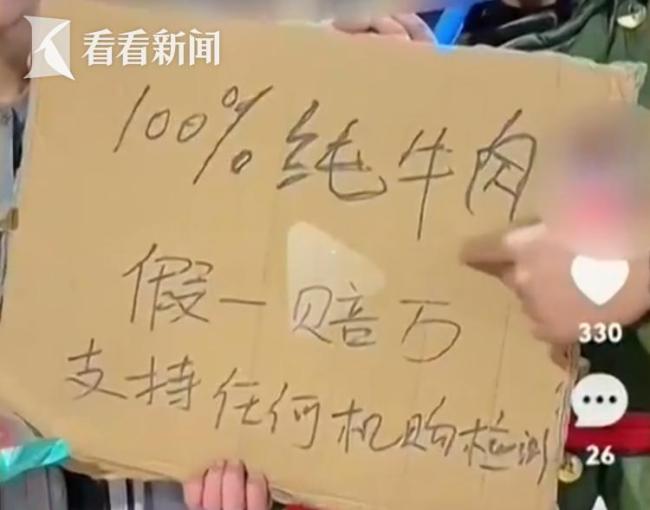 看看新闻
100%纯牛肉
假一赔万
支持任何机购检测
330
26